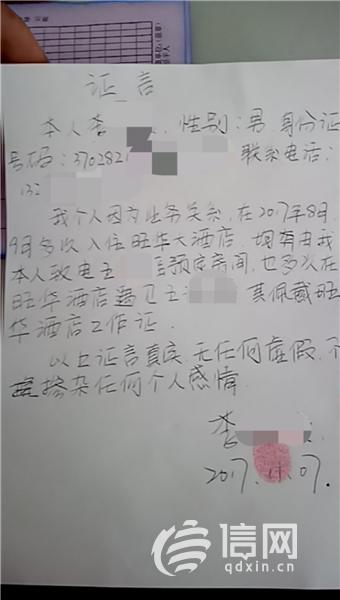 证言
本人李 性别：男，身份证
号码：3702821 联系电话：
132
我个人因为业务关系，在2017年8月、
9月多次入住旺华大酒店，期间由我
本人致电王 预定房间，也多次在
旺华酒店遇见王 其佩戴旺
华酒店工作证．
以上证言真实，无任何虚假，不
掺杂任何个人感情．
李
2017．11．07．
信网
qdxin.cn